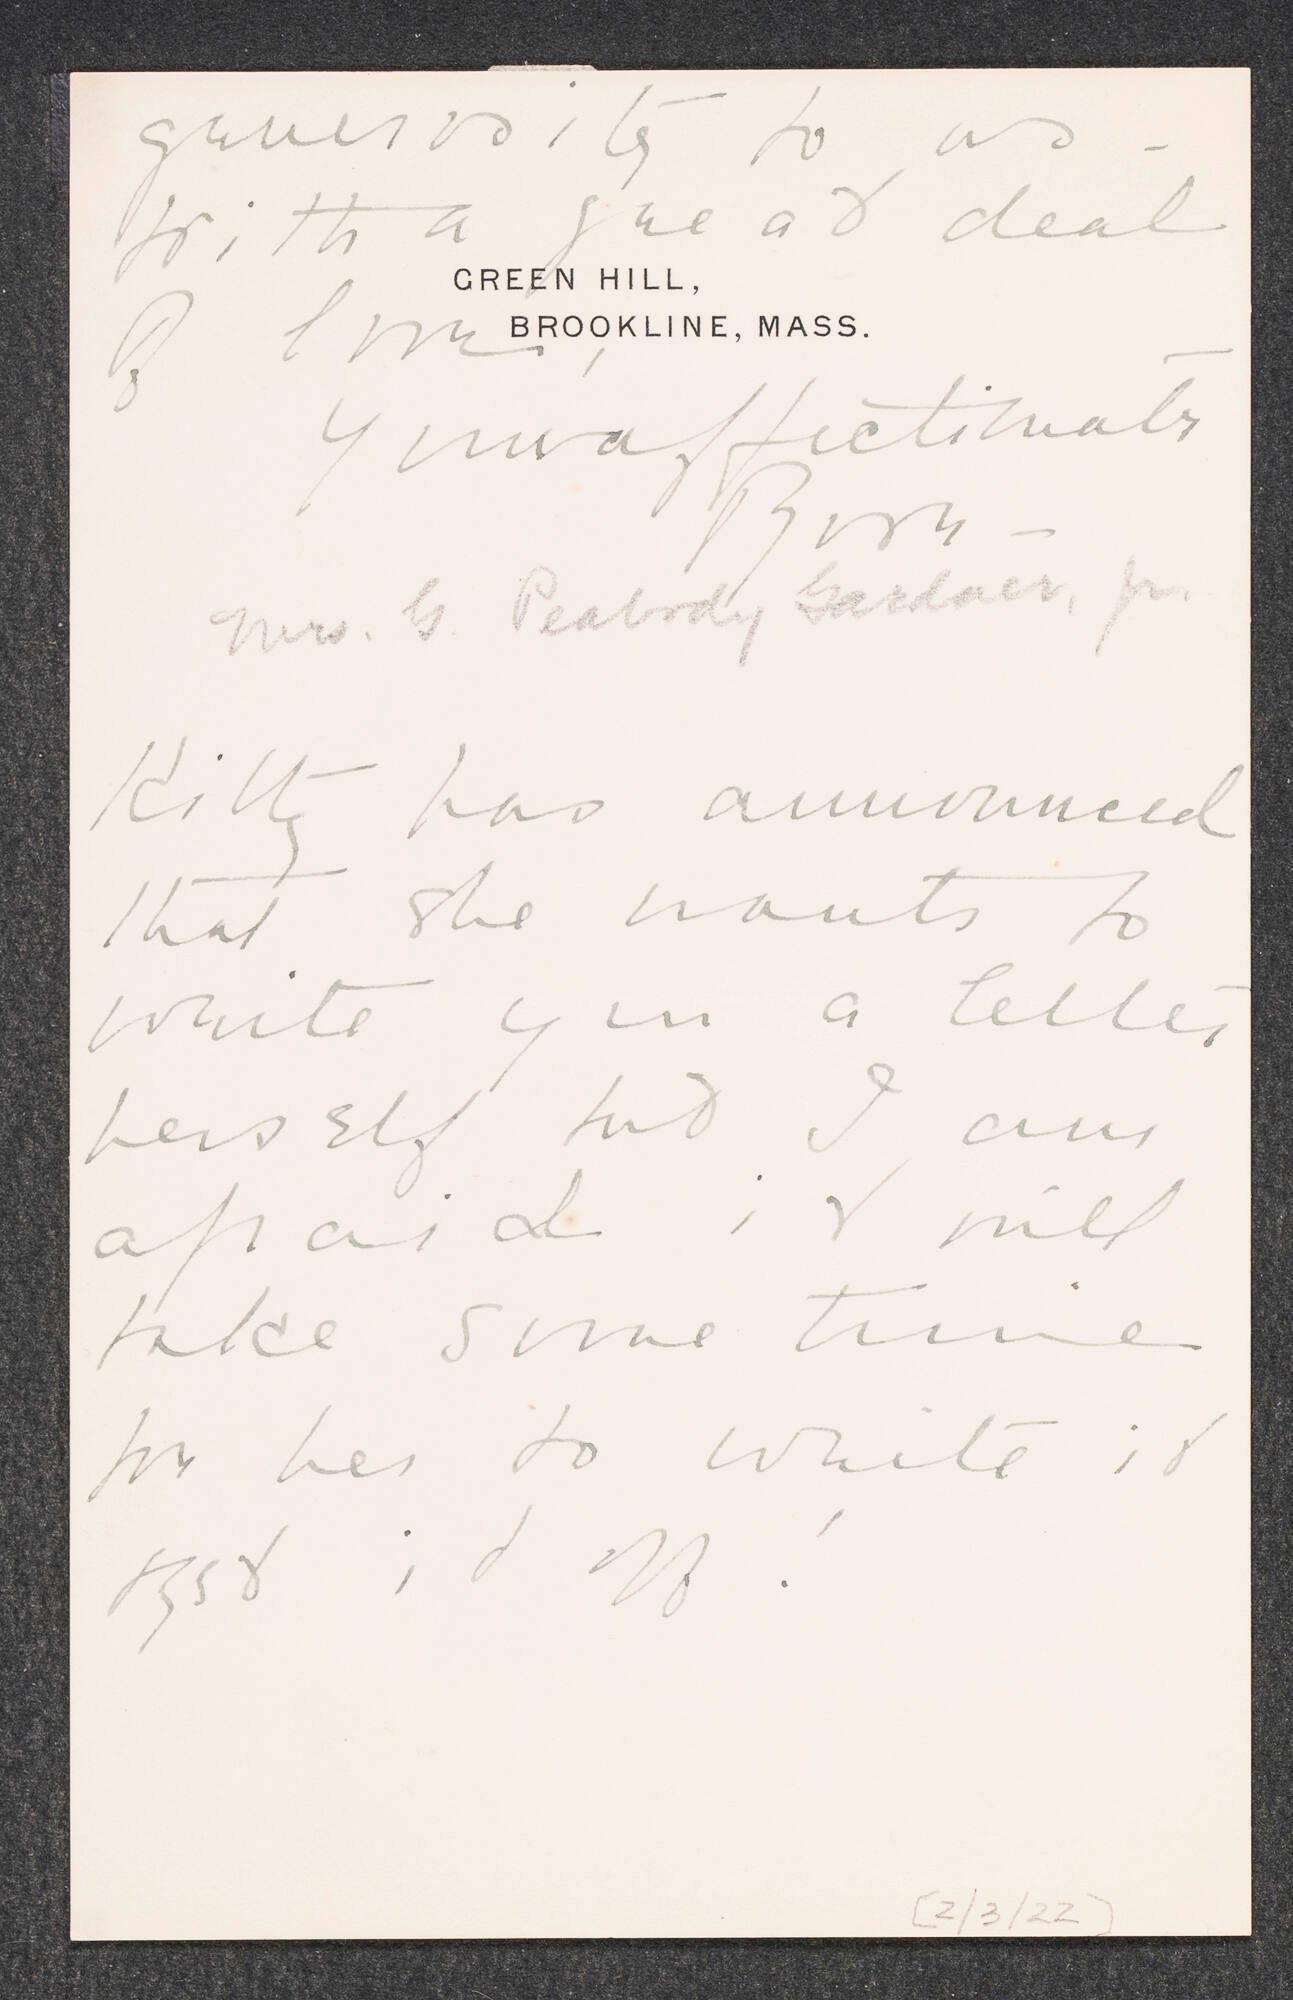 generosity to us -
With a great deal
GREEN HILL,
of love,
BROOKLINE, MASS.
Your affectionate
Rose -
Mrs. G. Peabody Gardner, Jr.
Kitty has announced
that she wants to
write you a letter
herself but I am
afraid it will
take some time
for her to write it
& get it off!
[2/3/22]